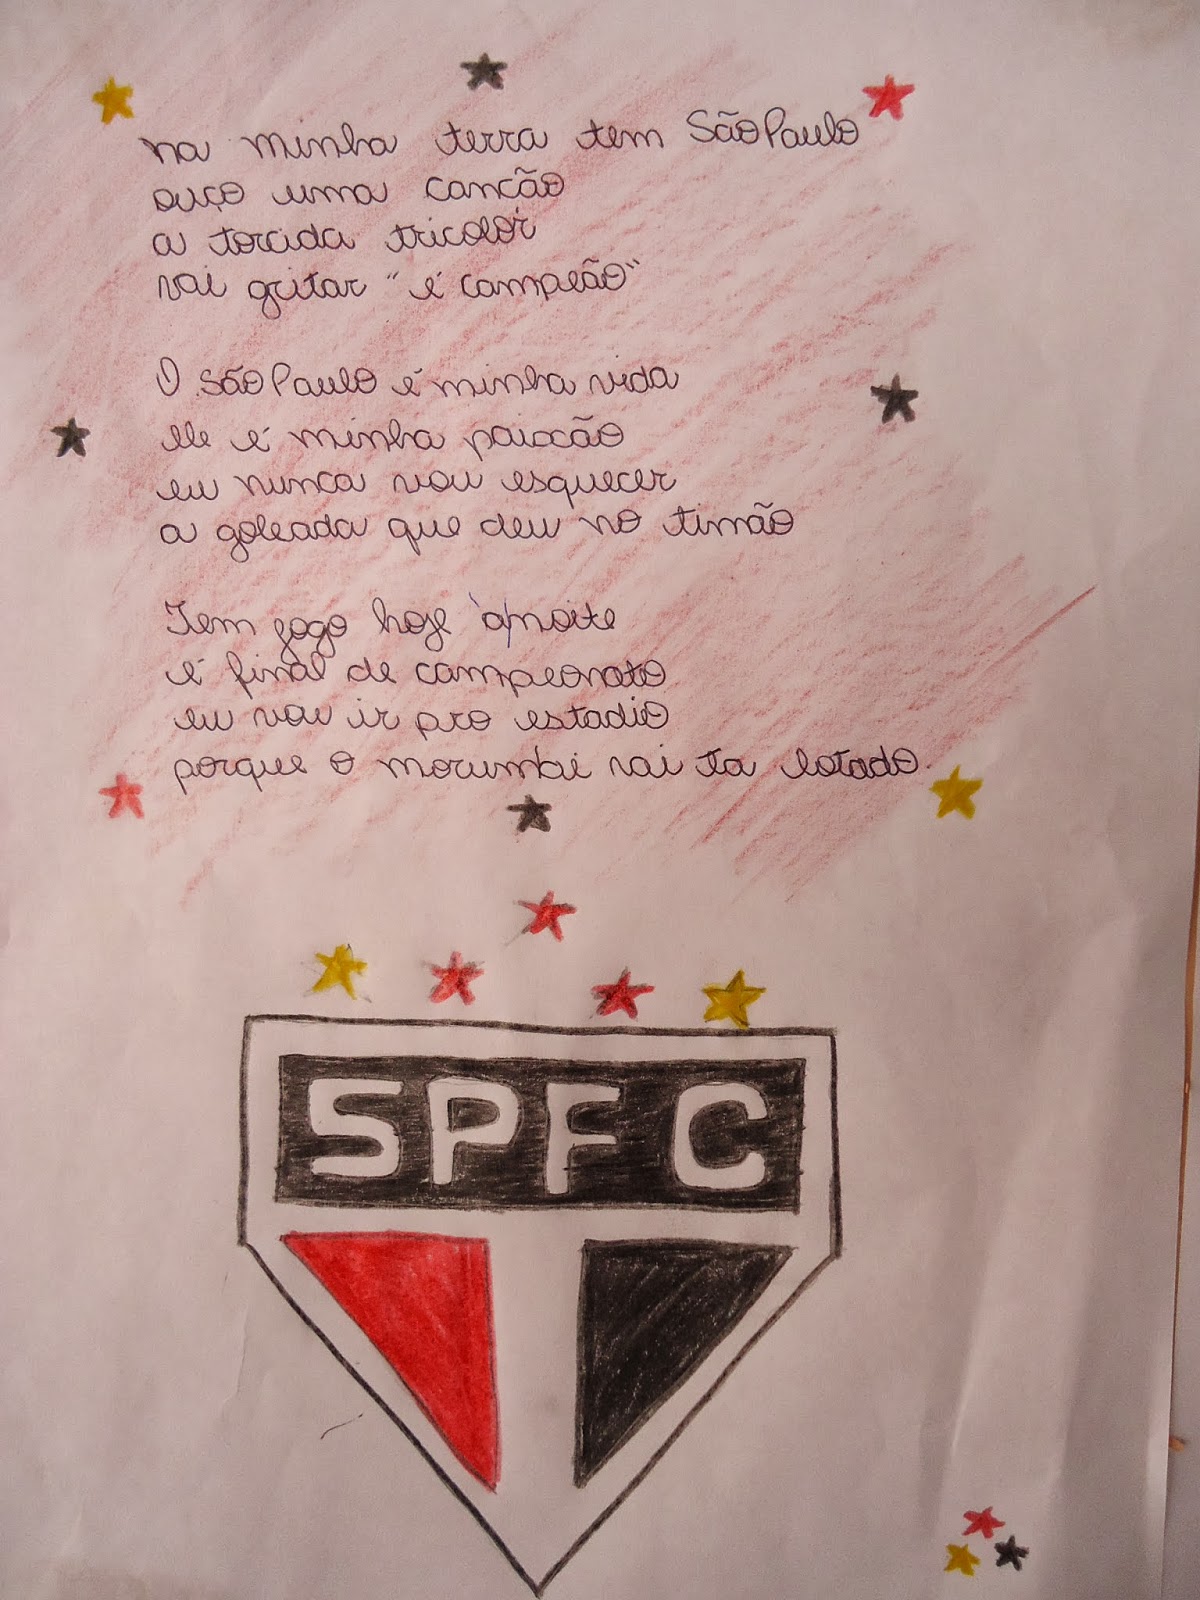 na minha terra tem São Paulo
ouço uma canção
a torcida tricolor
vai gritar "é campeão"
O São Paulo é minha vida
ele é minha paixão
eu nunca vou esquecer
a goleada que deu no timão
Tem jogo hoje à noite
é final de campeonato
eu vou ir pro estadio
porque o morumbi vai ta lotado.
SPFC